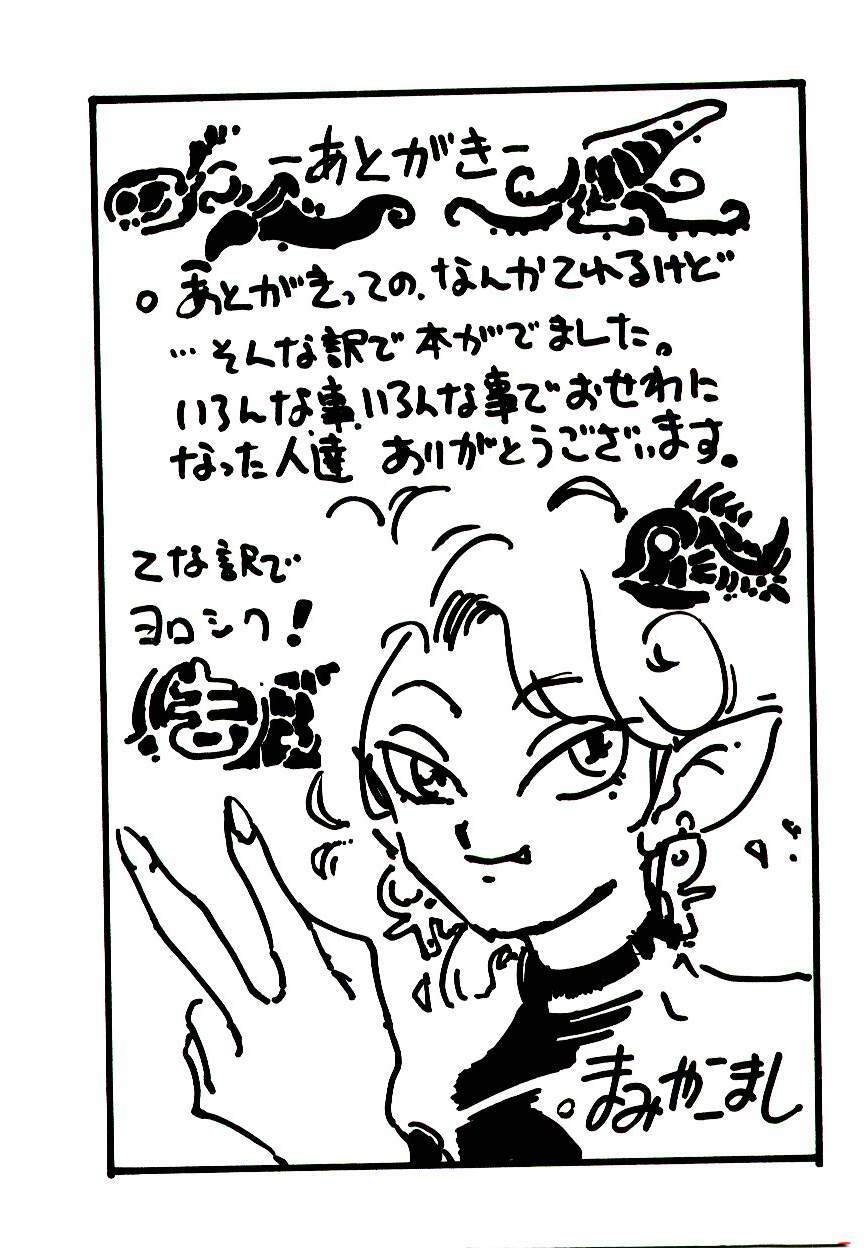 －あとがき－
○あとがきっての、なんかてれるけど
…そんな訳で本がでました。
いろんな事、いろんな事でおせわに
なった人達 ありがとうございます。
てな訳で
ヨロシク！
○まみやこまし